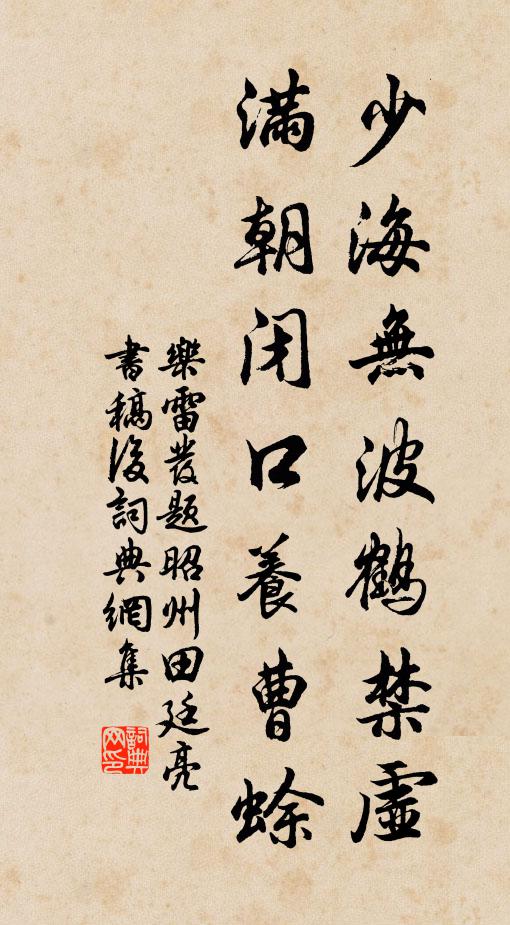 少海無波鶴禁虛
滿朝閉口養曹蜍
樂雷發題昭州田廷亮
書稿後詞典網集
詞典网印